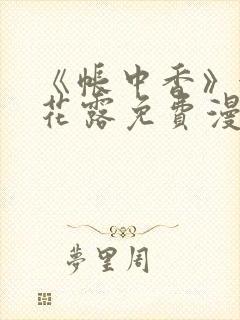 《帐中香》
花露免费漫
夢里周